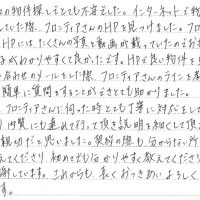 の物件探しはとても不安でした。インターネットで物
していた際、フロンティアさんのHPを見つけました。フロ
HPには、たくさんの写真と動画が載っていたのでお部
がわかりやすくて良かったです。HPで良い物件を見
い合わせのメールをした際、フロンティアさんのラインを
簡単に質問をすることができてとても助かりました。
フロンティアさんに伺った時とても丁寧に対応をして
内覧にも連れて行って頂き説明も細かくして頂
親切だと思いました。契約の際も分からない所
えてくださり、初めてでも分かりやすく教えてくださり
謝しています。これからも長いおつきあいよろしく
す。